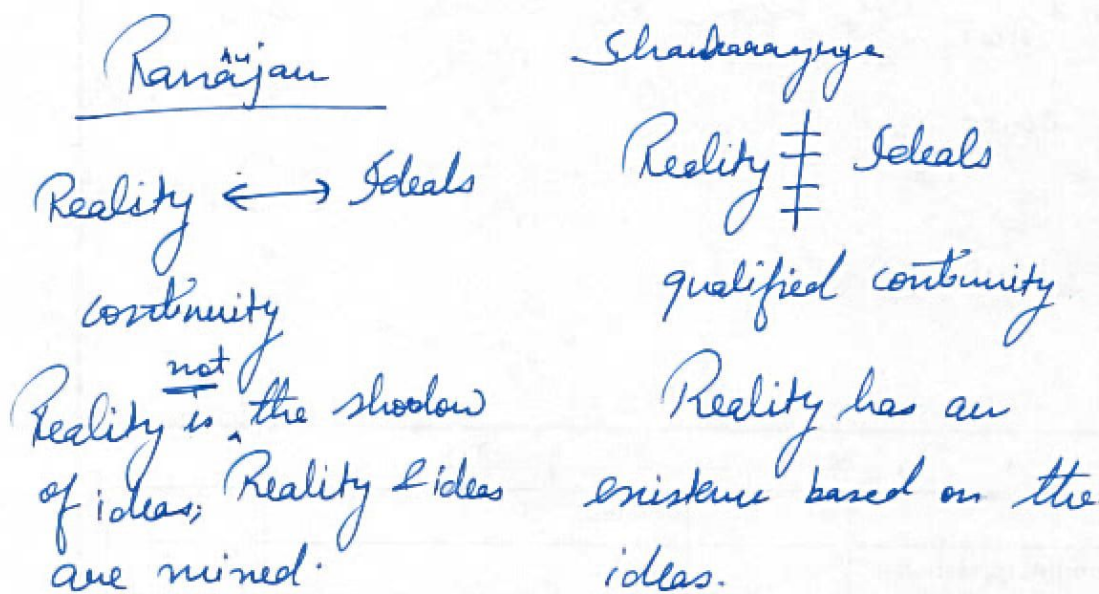 Ramanujan
Reality ⟷ Ideals
continuity
Reality is not the shadow
of ideas, Reality & ideas
are mixed.
Shankaracharya
Reality Ideals
qualified continuity
Reality has an
existence based on the
ideas.